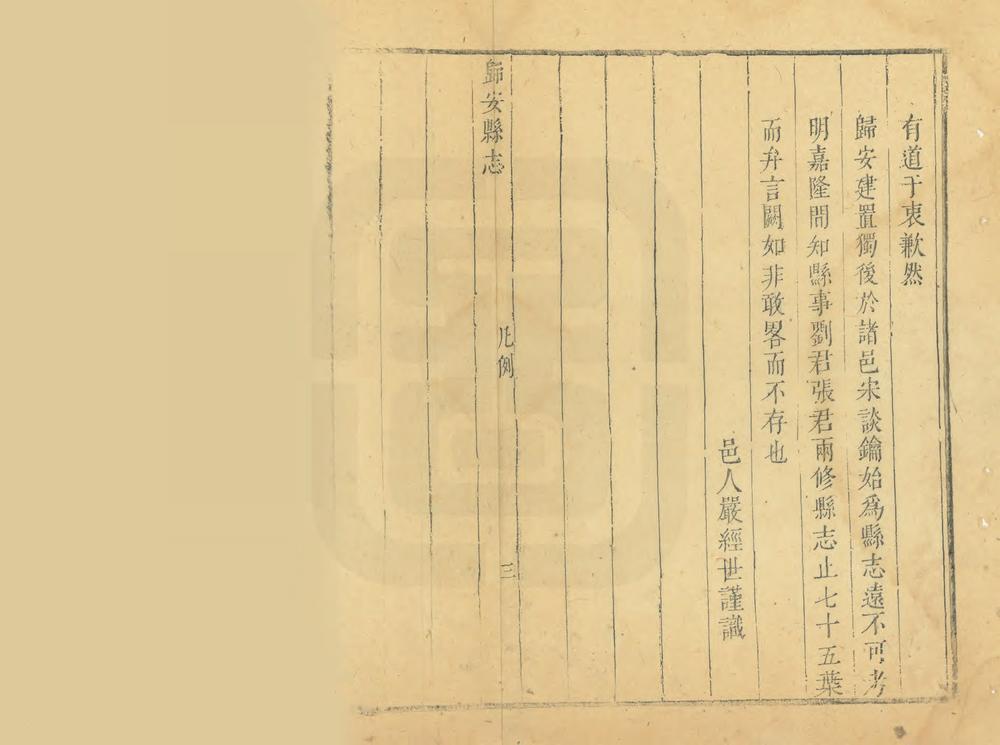 有道于衷歉然
歸安建置獨後於諸邑宋談鑰始爲縣志遠不可考
明嘉隆間知縣事劉君張君兩修縣志止七十五葉
而弁言闕如非敢畧而不存也
邑人嚴經世謹識
歸安縣志
凡例
三